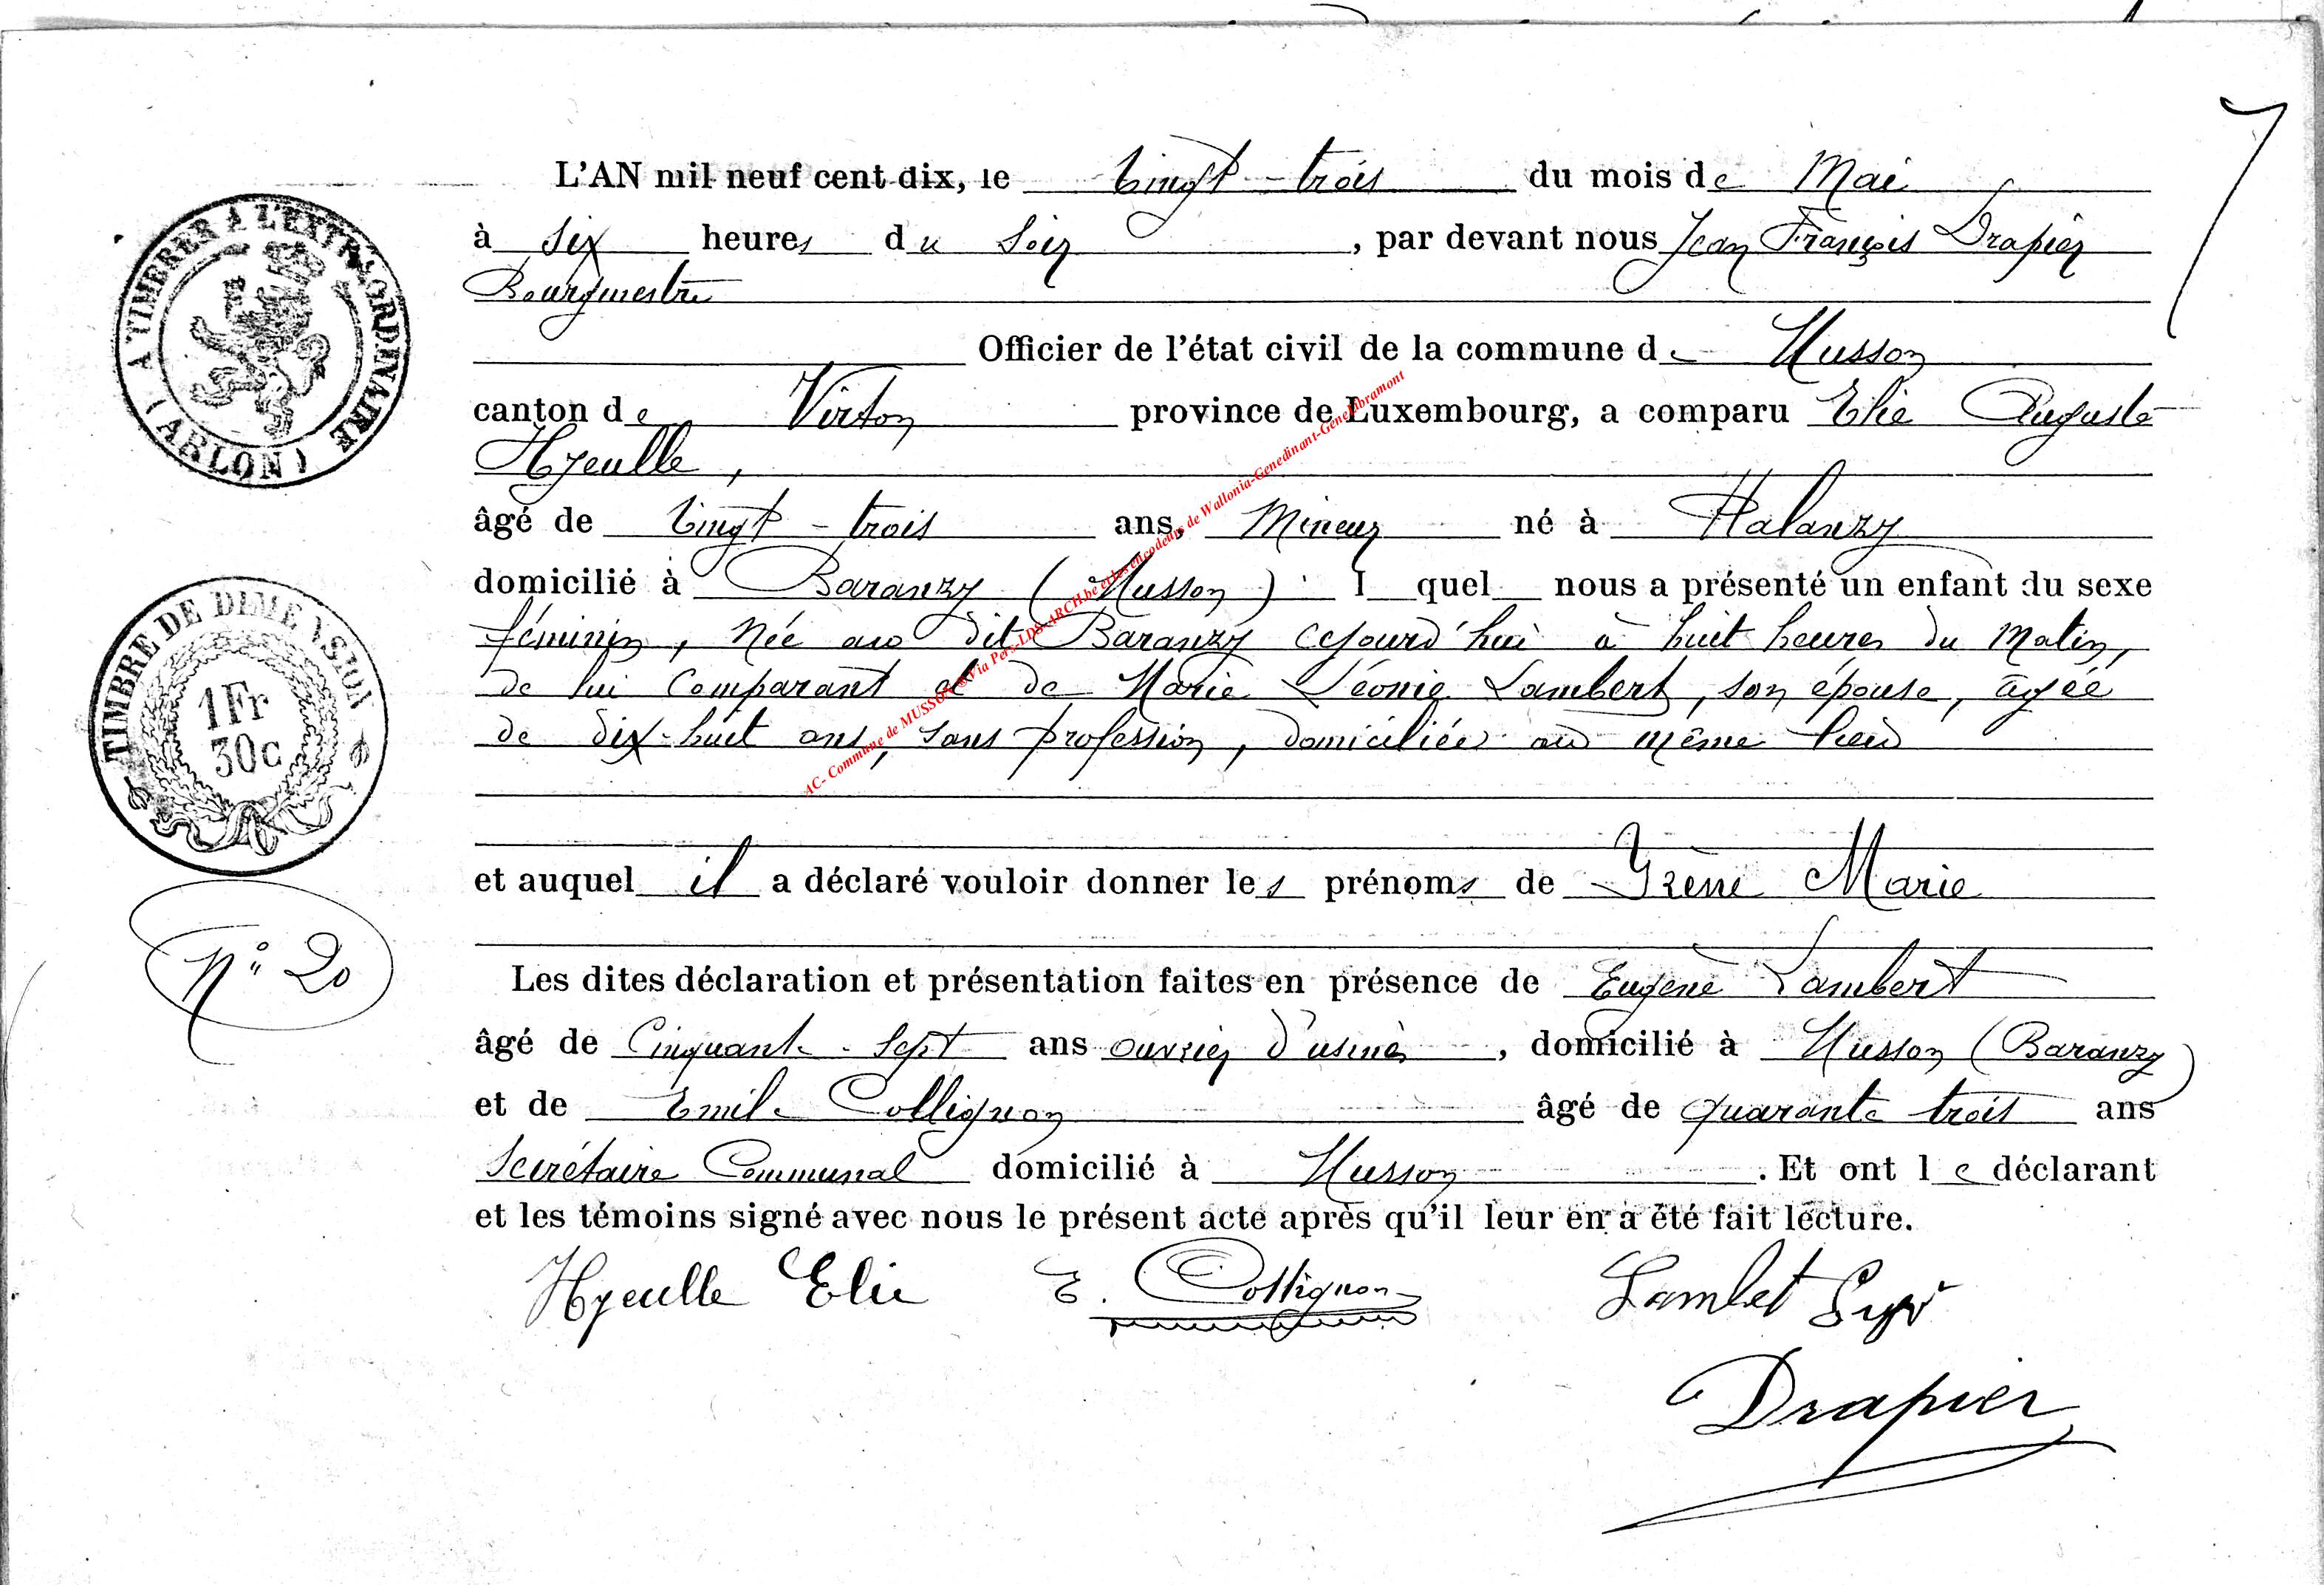 7
L'AN mil neuf cent dix, le vingt-trois du mois de Mai
à six heures du soir, par devant nous Jean François Drapier
Bourgmestre
Officier de l'état civil de la commune de Musson
canton de Virton province de Luxembourg, a comparu Elie Auguste
Hyeulle,
âgé de vingt-trois ans, Mineur né à Halanzy
domicilié à Baranzy (Musson) l quel nous a présenté un enfant du sexe
féminin, née au dit Baranzy cejourd'hui à huit heures du matin,
de lui comparant et de Marie Léonie Lambert, son épouse, âgée
de dix-huit ans, sans profession, domiciliée au même lieu
et auquel il a déclaré vouloir donner les prénoms de Irène Marie
Les dites déclaration et présentation faites en présence de Eugène Lambert
âgé de Cinquante-sept ans ouvrier d'usines, domicilié à Musson (Baranzy)
et de Emile Collignon âgé de quarante trois ans
Secrétaire Communal domicilié à Musson. Et ont le déclarant
et les témoins signé avec nous le présent acte après qu'il leur en a été fait lecture.
Hyeulle Elie E. Collignon Lambet
Drapier
A TIMBRER A L'EXTRAORDINAIRE (ARLON)
TIMBRE DE DIMENSION
1Fr
30c
N° 20
AC- Commune de MUSSON @Via Pers-LDS-ARCH.be et les encodeurs de Wallonia-Genedinant-Genelibramont